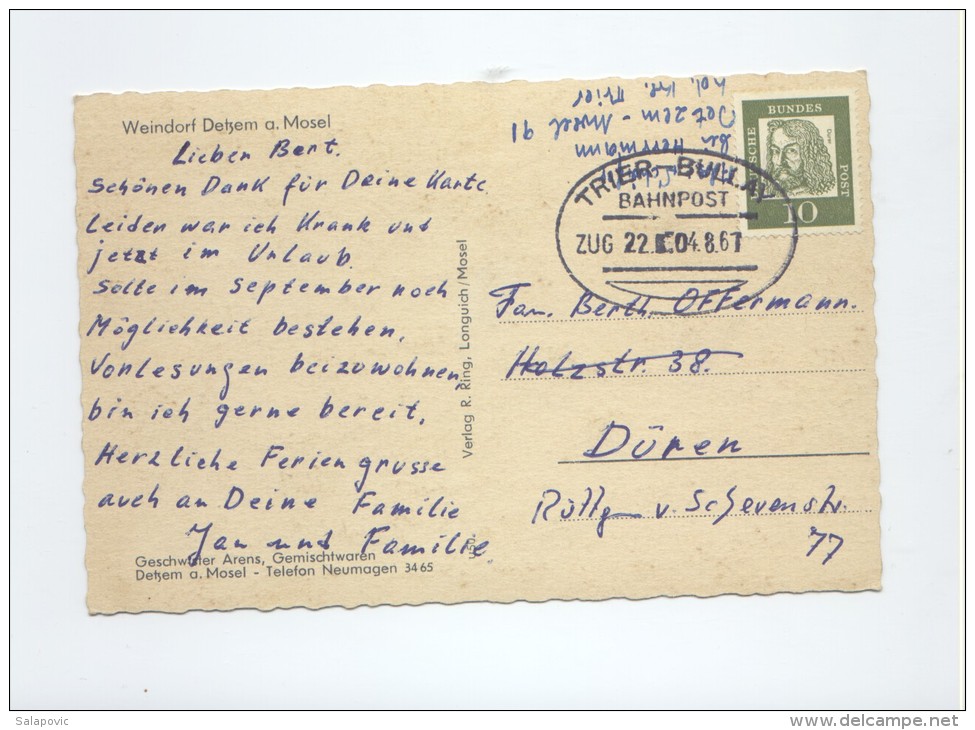 Weindorf Detzem a. Mosel
Lieben Bert.
Schönen Dank für Deine Karte
Leiden war ich Krank unt
jetzt im Urlaub.
Solte im September noch
Möglichkeit bestehen,
Vorlesungen beizuwohnen,
bin ich gerne bereit,
Herzliche Ferien grusse
auch an Deine Familie
Jan und Familie
Geschwister Arens, Gemischtwaren
Detzem a. Mosel - Telefon Neumagen 34 65
Verlag R. Ring, Longuich/Mosel
bei Herrmann
Detzem - Mosel 91
Trier
DEUTSCHE BUNDES POST
Dürer
10
TRIER-BULLAY
BAHNPOST
ZUG 22 04.8.61
Fam. Berth Offermann.
Holzstr. 38.
Düren
v. Schevenstr.
77
Salapovic
www.delcampe.net